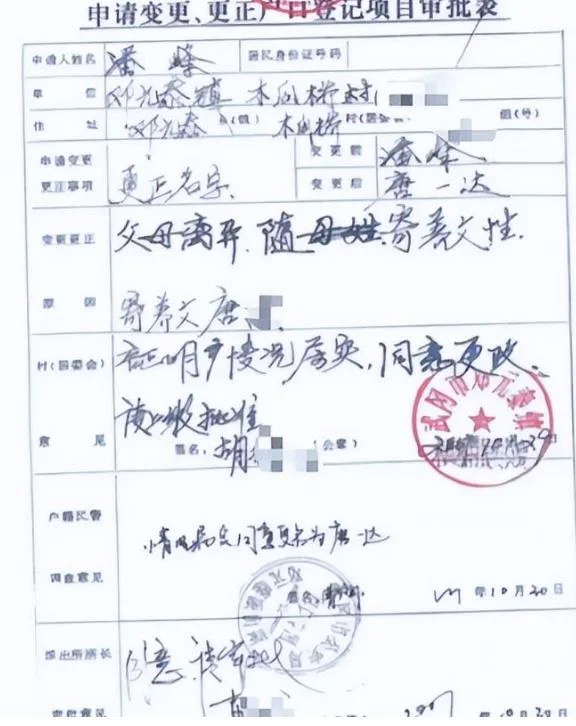 申请变更、更正户口登记项目审批表
申请人姓名 潘峰 居民身份证号码
单位 邓元泰镇 木瓜桥村
住址 邓元泰 乡(镇) 木瓜桥 村(居委会) 组(号)
申请变更更正事项 更正名字 变更前 潘峰
变更后 唐一达
变更更正原因 父母离异.随母姓.寄养父性.
寄养父唐
村(居委会)意见 情况属实,同意更改.
请上级批准
签名: 胡 (公章)
户籍民警调查意见 情况属实同意更名为唐一达
年10月20日
派出所所长审批意见 同意